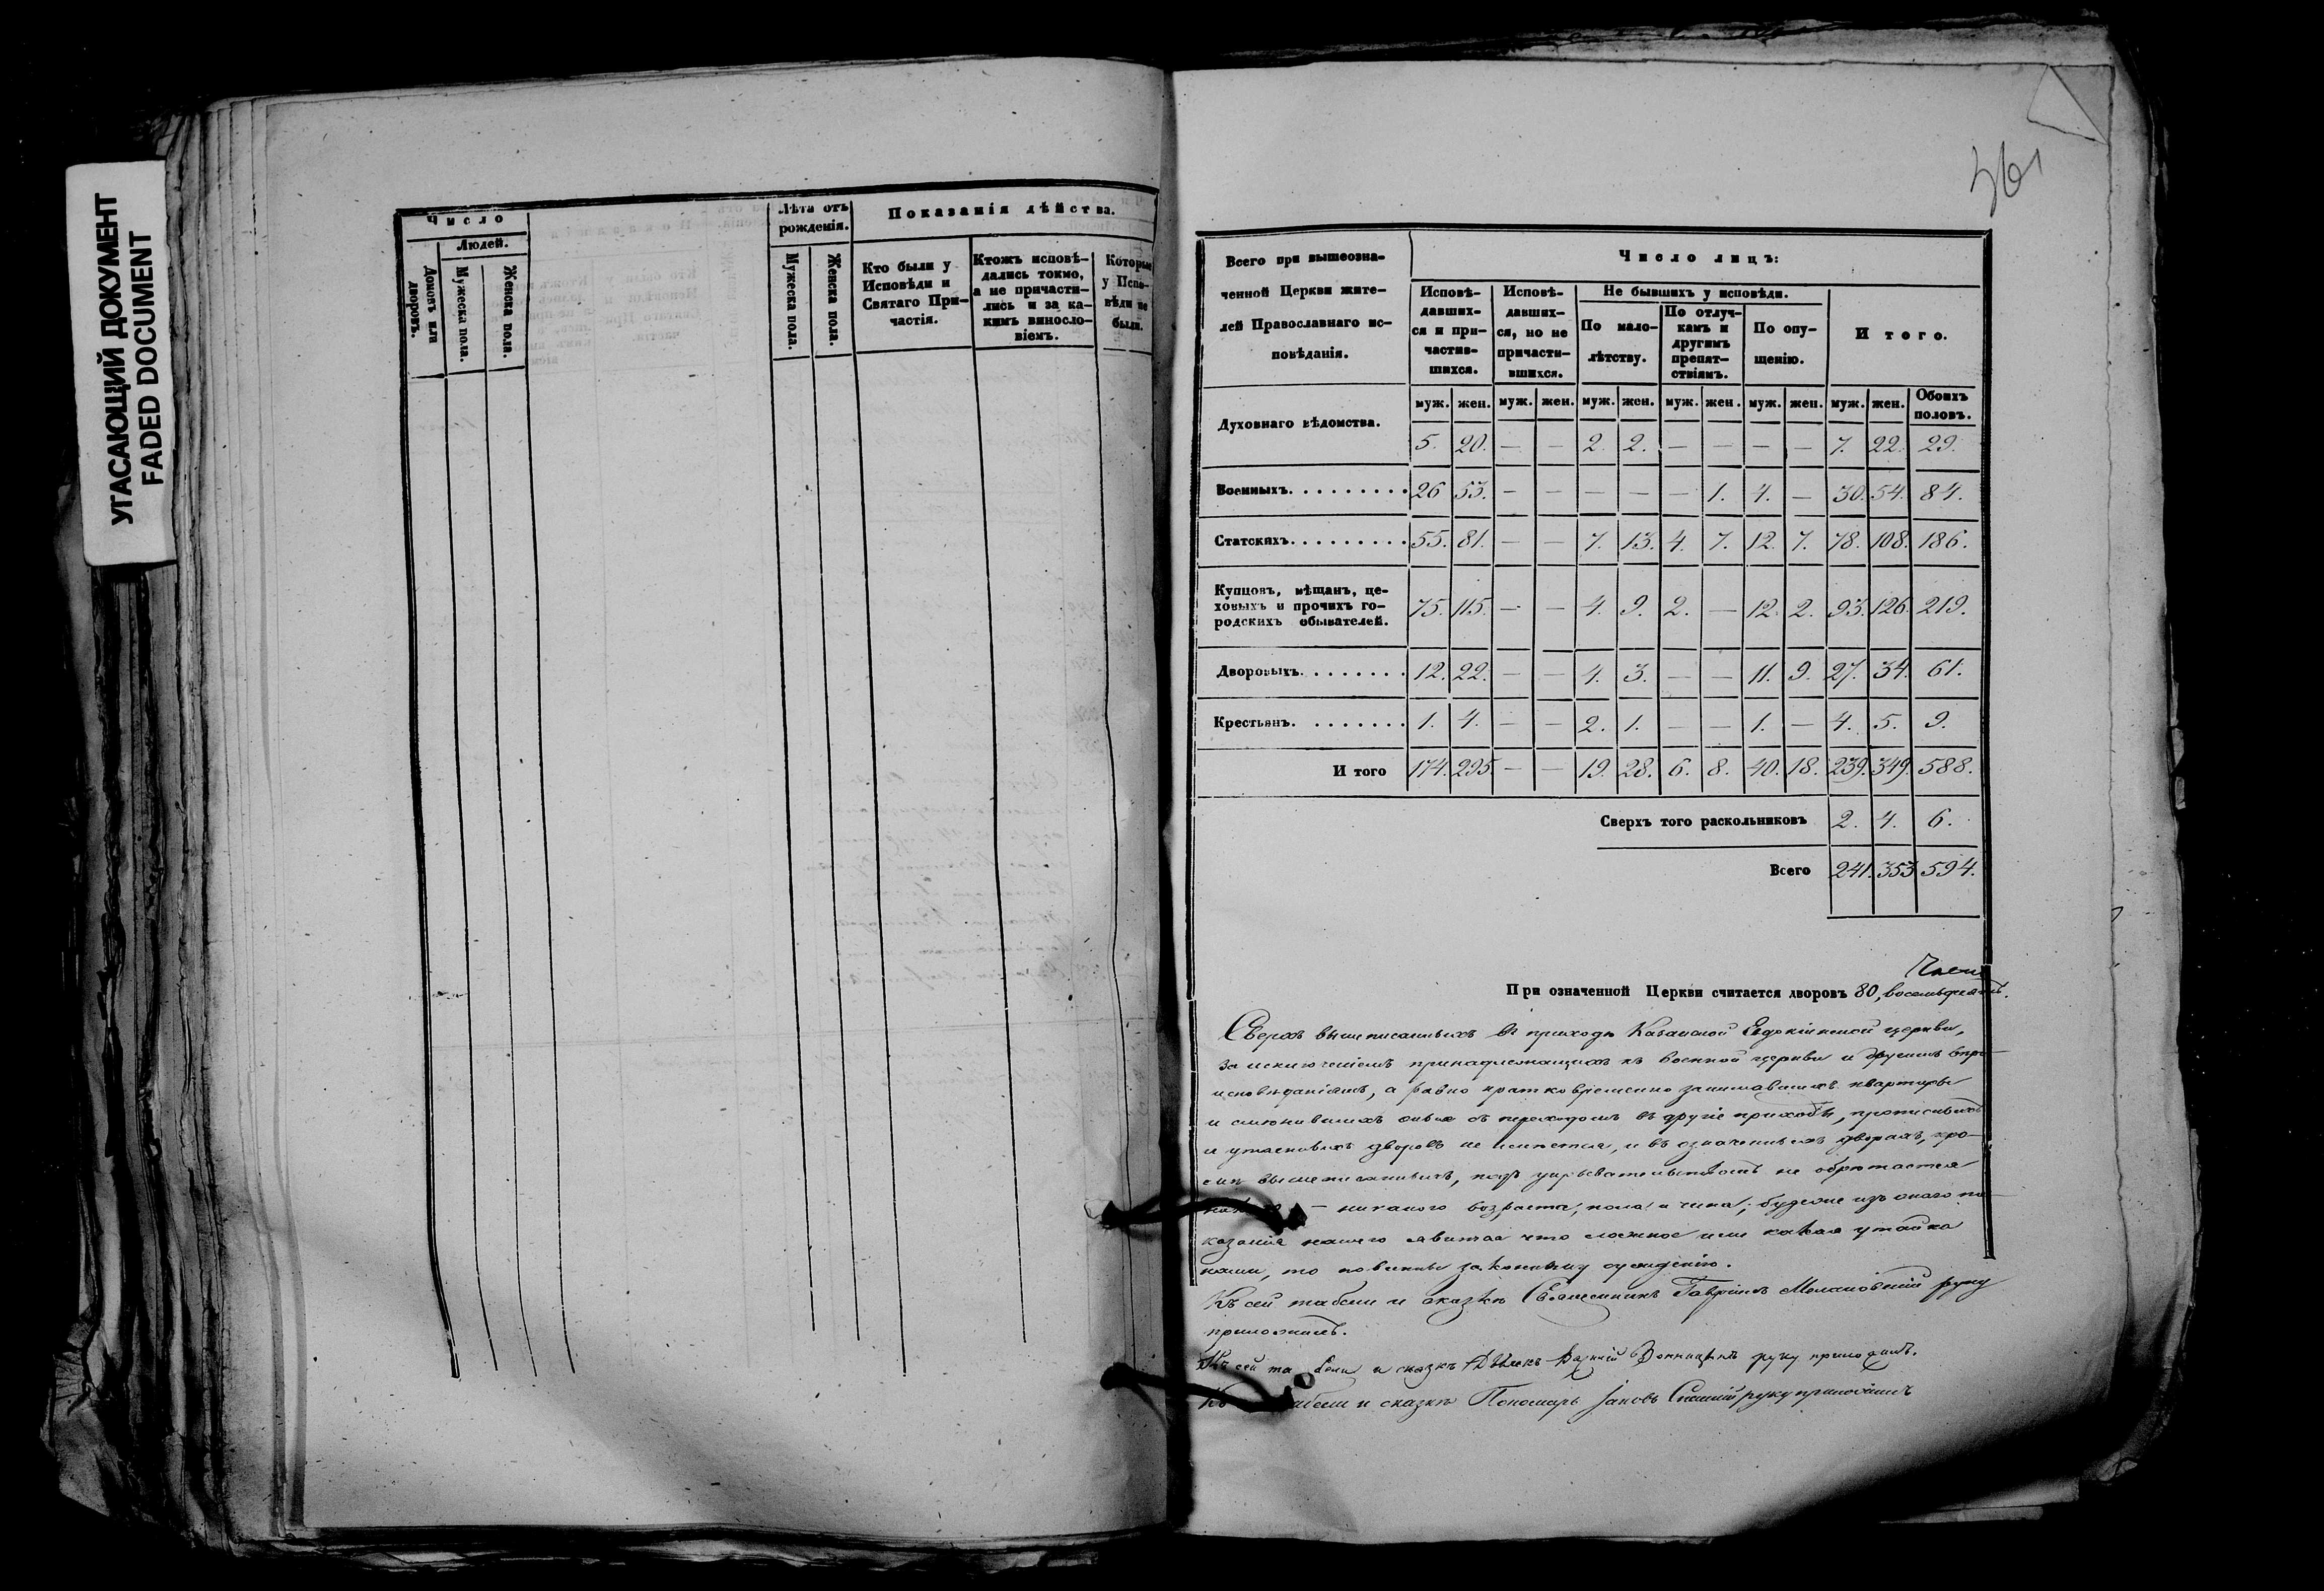 УГАСАЮЩИЙ ДОКУМЕНТ
FADED DOCUMENT
Число
Людей.
Домовъ или дворовъ.
Мужеска пола.
Женска пола.
Лѣта отъ рожденія.
Мужеска пола.
Женска пола.
Показанія дѣйства.
Кто были у
Исповѣди и
Святаго При-
частія.
Ктожъ исповѣ-
дались токмо,
а не причасти-
лись и за ка-
кимъ винosло-
віемъ.
Которые
у Испо-
вѣди не
были.
361
Всего при вышеозна-
ченной Церкви жите-
лей Православнаго ис-
повѣданія.
Число лицъ:
Исповѣ-
давших-
ся и при-
частив-
шихся.
Исповѣ-
давших-
ся, но не
причасти-
вшихся.
Не бывшихъ у исповѣди.
По мало-
лѣтству.
По отлуч-
камъ и
другимъ
препят-
ствіямъ.
По опу-
щенію.
Итого.
муж. жен. муж. жен. муж. жен. муж. жен. муж. жен. муж. жен. Обоихъ половъ.
Духовнаго вѣдомства. 5. 20. — — 2. 2. — — — — 7. 22. 29.
Военныхъ. 26 53. — — — — — 1. 4. — 30. 54. 84.
Статскихъ. 55. 81. — — 7. 13. 4. 7. 12. 7. 78. 108. 186.
Купцовъ, мѣщанъ, це-
ховыхъ и прочихъ го-
родскихъ обывателей. 75. 115. — — 4. 9. 2. — 12. 2. 93. 126. 219.
Дворовыхъ. 12. 22. — — 4. 3. — — 11. 9. 27. 34. 61.
Крестьянъ. 1. 4. — — 2. 1. — — 1. — 4. 5. 9.
И того 174. 295. — — 19. 28. 6. 8. 40. 18. 239. 349. 588.
Сверхъ того раскольниковъ 2. 4. 6.
Всего 241. 353 594.
При означенной Церкви считается дворовъ 80, восемьдесятъ.
Сверхъ вышеписанныхъ въ приходѣ Казанской Евдокіинской церкви,
за исключеніемъ принадлежащихъ къ военной церкви и другимъ вѣро-
исповѣданіямъ, а равно кратковременно занимавшихъ квартиры
и смѣнившихъ оныя съ переходомъ въ другіе приходы, прописныхъ
и утаенныхъ дворовъ не имѣется, и въ означенныхъ дворахъ, кро-
мѣ вышеписанныхъ, подъ укрывательствомъ не обрѣтается
никого – никакого возраста, пола и чина; буде же изъ онаго по-
казанія нашего явится что ложное или какая утайка
нами, то повинны законному сужденію.
Къ сей табели и сказкѣ Священникъ Гавріилъ руку
приложилъ.
Къ сей табели и сказкѣ руку приложилъ.
Къ табели и сказкѣ Пономарь Іаковъ руку приложилъ